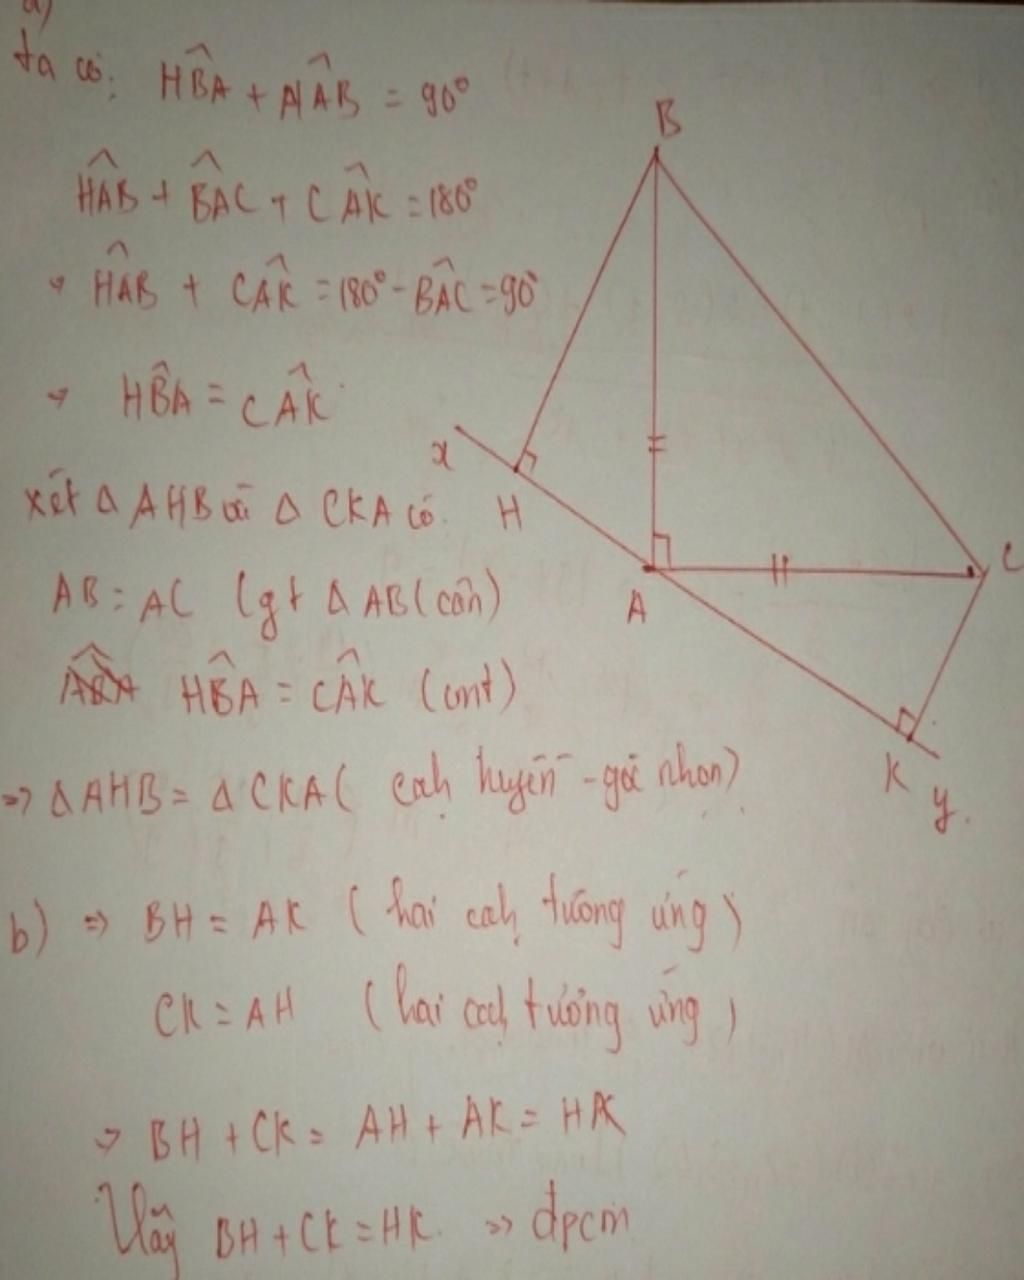 a)
ta có: HBA + HAB = 90°
HAB + BAC + CAK = 180°
⇒ HAB + CAK = 180° - BAC = 90°
⇒ HBA = CAK
xét Δ AHB và Δ CKA có
AB = AC (gt Δ ABC cân)
HBA = CAK (cmt)
=> Δ AHB = Δ CKA ( cạh huyền - góc nhọn)
b) => BH = AK ( hai cạh tương ứng )
CK = AH ( hai cạh tương ứng )
=> BH + CK = AH + AK = HK
Vậy BH + CK = HK. => đpcm
B
x
H
A
C
K
y